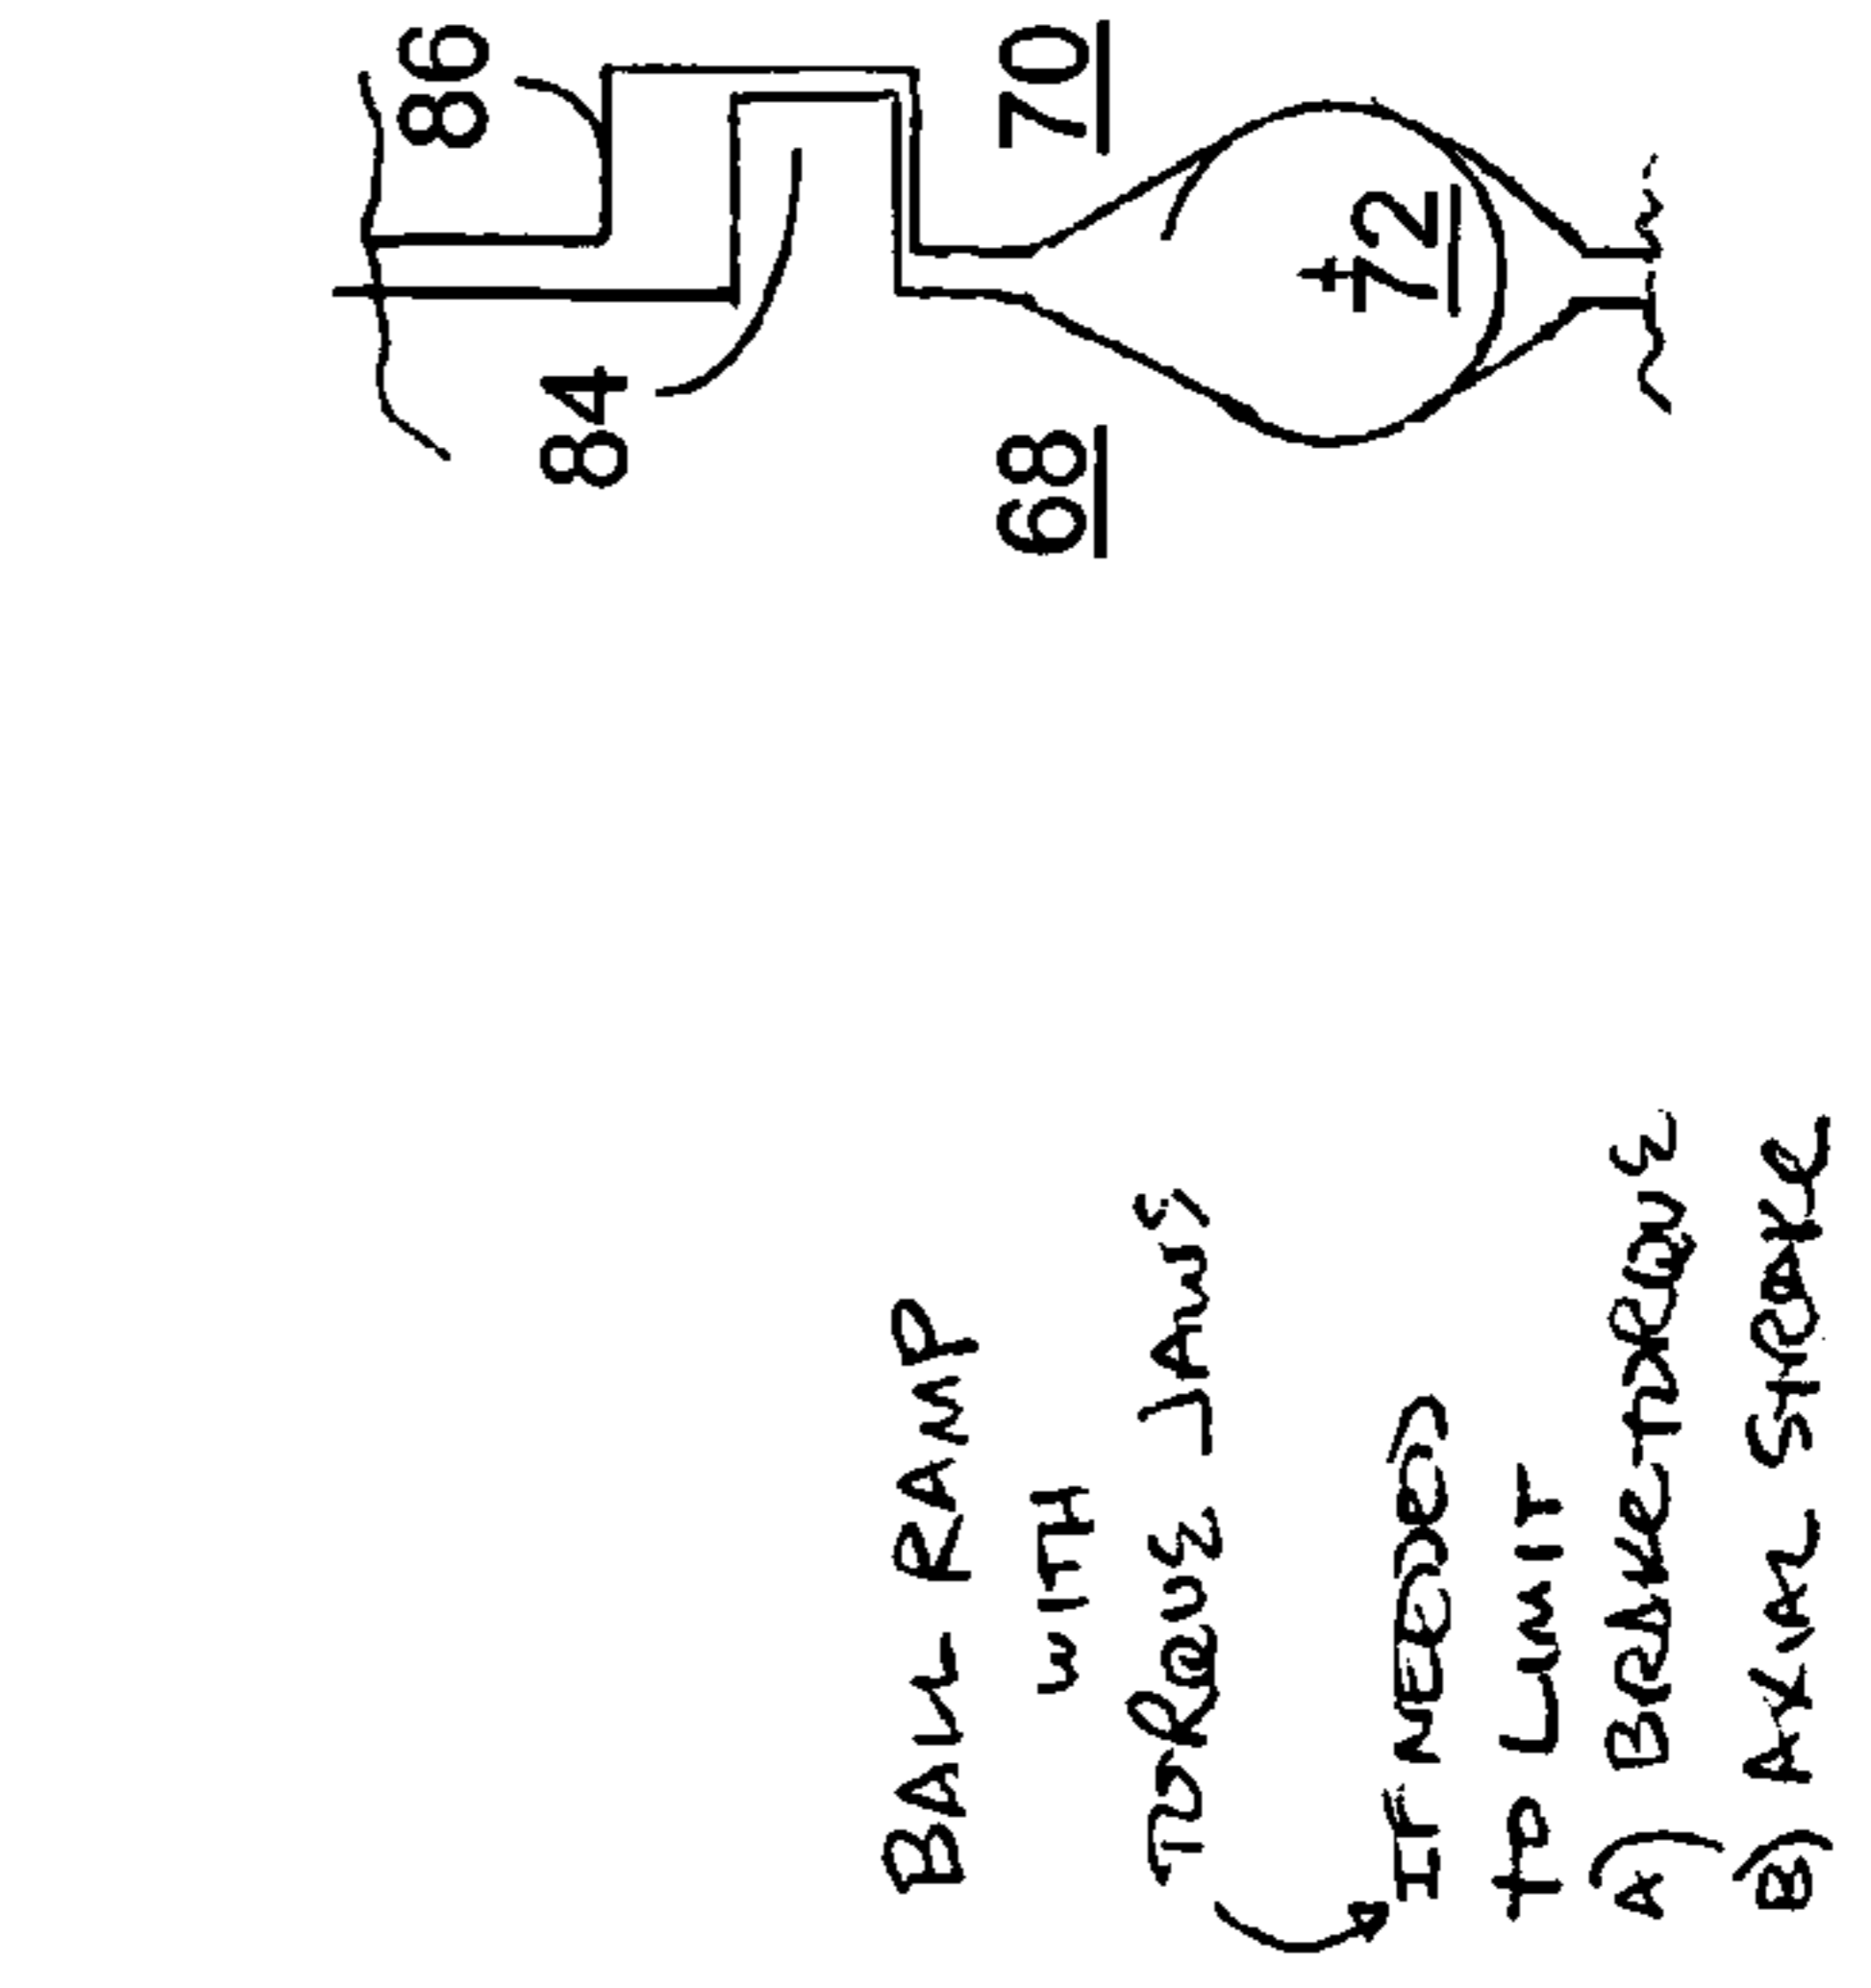 86
84
BALL RAMP
WITH
TORQUE JAWS
IF NEEDED)
TO LIMIT
A) BRAKE TORQUE
B) AXIAL STROKE
68
70
72